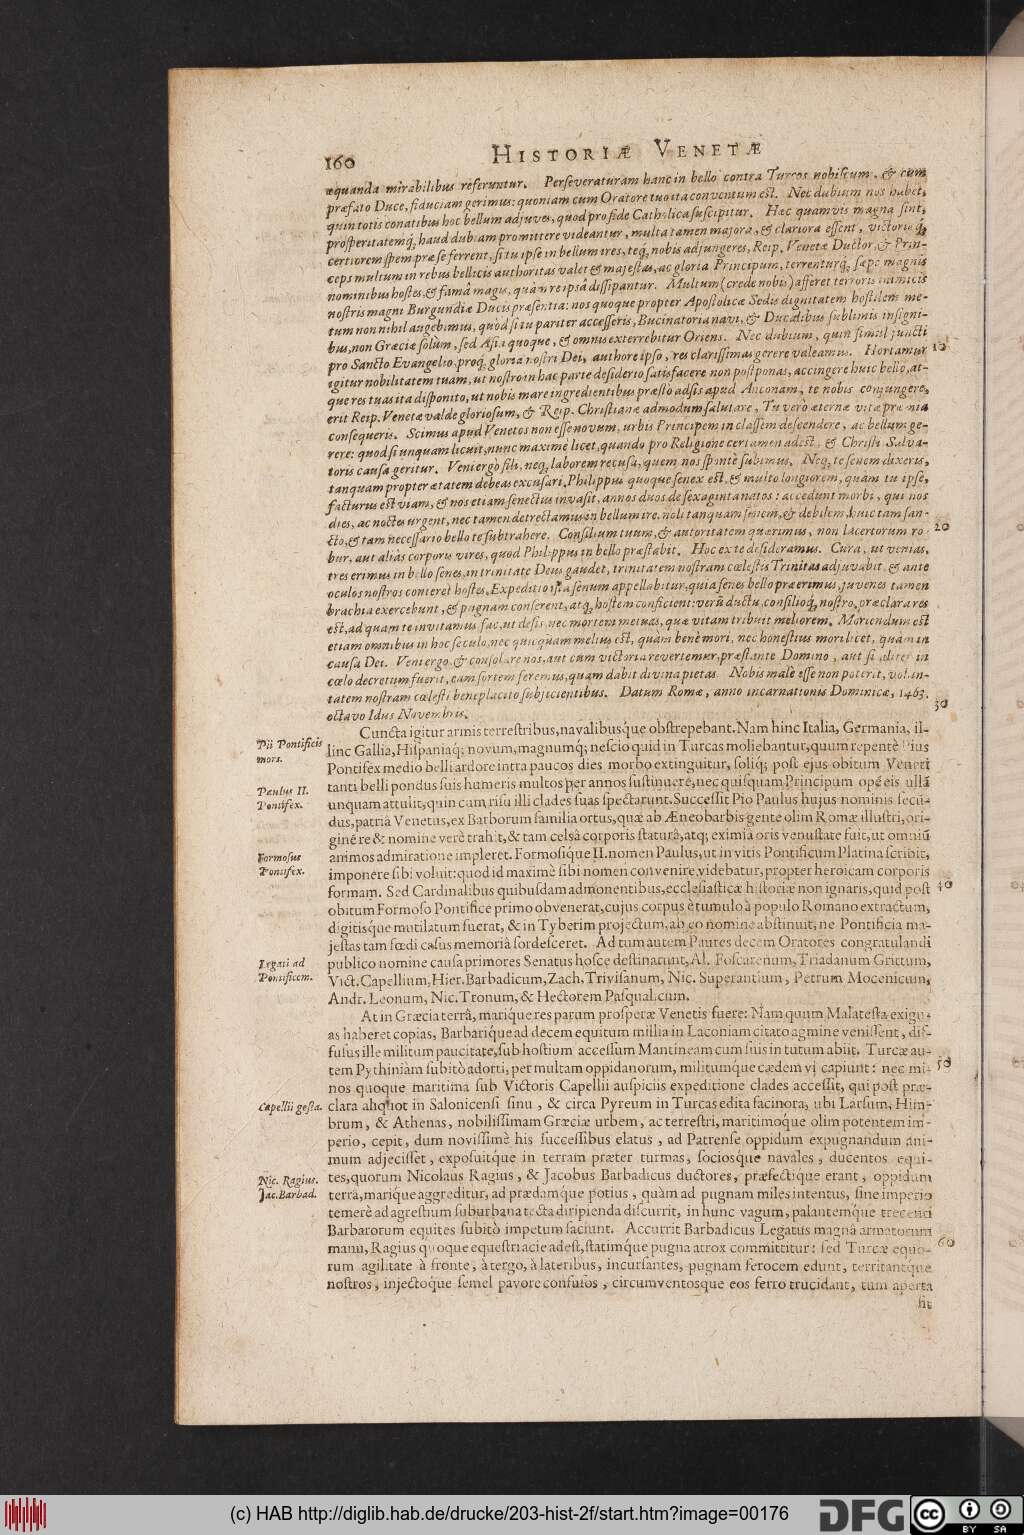 160 HISTORIÆ VENETÆ
æquanda mirabilibus referuntur. Perseveraturam hanc in bello contra Turcos nobiscum, & cum
præfato Duce, fiduciam gerimus: quoniam cum Oratore tuo ita conventum est. Nec dubium nos habet,
quin totis conatibus hoc bellum adjuves, quod pro fide Catholica suscipitur. Hæc quamvis magna sint,
prosperitatemq́; haud dubiam promittere videantur, multa tamen majora, & clariora essent, victoriæq́;
certiorem spem præ se ferrent, si tu ipse in bellum ires, teq́; nobis adjungeres, Reip. Venetæ Ductor, & Prin-
ceps multum in rebus bellicis authoritas valet & majestas, ac gloria Principum, terrenturq́; sæpe magnis
nominibus hostes, & famâ magis, quàm re ipsâ dissipantur. Multum (crede nobis) afferet terroris inimicis
nostris magni Burgundiæ Ducis præsentia: nos quoque propter Apostolicæ Sedis dignitatem hostilem me-
tum non nihil augebimus, quòd si tu pariter accesseris, Bucinatoria navi, & Ducalibus sublimis insigni-
bus, non Græcia solùm, sed Asia quoque, & omnis exterrebitur Oriens. Nec dubium, quin simul juncti 10
pro Sancto Evangelio, proq́; gloria nostri Dei, authore ipso, res clarissimas gerere valeamus. Hortamur
igitur nobilitatem tuam, ut nostro in hac parte desiderio satisfacere non postponas, accingere huic bello, at-
que res tuas ita disponito, ut nobis mare ingredientibus præstò adsis apud Anconam, te nobis conjungere,
erit Reip. Venetæ valde gloriosum, & Reip. Christianæ admodum salutare, Tu verò æternæ vitæ præmia
consequeris. Scimus apud Venetos non esse novum, urbis Principem in classem descendere, ac bellum ge-
rere: quod si unquam licuit, nunc maximè licet, quando pro Religione certamen adest, & Christi Salva-
toris causa geritur. Veni ergò fili, neq́; laborem recusa, quem nos spontè subimus. Neq́; te senem dixeris,
tanquam propter ætatem debeas excusari. Philippus quoque senex est, & multo longiorem, quàm tu ipse,
facturus est viam, & nos etiam senectus invasit, annos duos de sexaginta natos: accedunt morbi, qui nos
dies, ac noctes urgent, nec tamen detrectamus in bellum ire. noli tanquam senem, & debilem, huic tam san-
cto, & tam necessario bello te subtrahere. Consilium tuum, & autoritatem quærimus, non lacertorum ro- 20
bur, aut alias corporis vires, quod Philippus in bello præstabit. Hoc ex te desideramus. Cura, ut venias.
tres erimus in bello senes, in trinitate Deus gaudet, trinitatem nostram cœlestis Trinitas adjuvabit, & ante
oculos nostros conteret hostes. Expeditio ista senum appellabitur, quia senes bello præerimus, juvenes tamen
brachia exercebunt, & pugnam conserent, atq́; hostem conficient: verũ ductu, consilioq́; nostro, præclara res
est, ad quam te invitamus fac, ut desis, nec mortem metuas, quæ vitam tribuit meliorem. Moriendum est
etiam omnibus in hoc seculo, nec quicquam melius est, quàm benè mori, nec honestius mori licet, quàm in
causa Dei. Veni ergo & consolare nos, aut cum victoria revertemur, præstante Domino, aut si aliter in
cœlo decretum fuerit, eam sortem feremus, quam dabit divina pietas. Nobis malè esse non poterit, volun-
tatem nostram cœlesti beneplacito subjicientibus. Datum Romæ, anno incarnationis Dominicæ, 1463.
octavo Idus Novembris. 30
Cuncta igitur armis terrestribus, navalibusq́ue obstrepebant. Nam hinc Italia, Germania, il-
Pii Pontificis mors.
linc Gallia, Hispaniaq́; novum, magnumq́; nescio quid in Turcas moliebantur, quum repentè Pius
Pontifex medio belli ardore intra paucos dies morbo extinguitur, soliq́; post ejus obitum Veneti
tanti belli pondus suis humeris multos per annos sustinuere, nec quisquam Principum opẽ eis ullã
Paulus II. Pontifex.
unquam attulit, quin cum risu illi clades suas spectarunt. Successit Pio Paulus hujus nominis secũ-
dus, patria Venetus, ex Barborum familia ortus, quæ ab Æneobarbis gente olim Romæ illustri, ori-
ginẽ re & nomine verè trahit, & tam celsâ corporis staturâ, atq́; eximiâ oris venustate fuit, ut omniũ
Formosus Pontifex.
animos admiratione impleret. Formosiq́ue II. nomen Paulus, ut in vitis Pontificum Platina scribit,
imponere sibi voluit: quod id maximè sibi nomen convenire videbatur, propter heroicam corporis
formam. Sed Cardinalibus quibusdam admonentibus, ecclesiasticæ historiæ non ignaris, quid post 40
obitum Formoso Pontifice primo obvenerat, cujus corpus è tumulo à populo Romano extractum,
digitisq́ue mutilatum fuerat, & in Tyberim projectum, ab eo nomine abstinuit; ne Pontificia ma-
jestas tam fœdi casus memoriâ sordesceret. Ad tum autem Patres decem Oratores congratulandi
Legati ad Pontificem.
publico nomine causa primores Senatus hosce destinarunt, Al. Foscarenum, Triadanum Grittum,
Vict. Capellium, Hier. Barbadicum, Zach. Trivisanum, Nic. Superantium, Petrum Mocenicum,
Andr. Leonum, Nic. Tronum, & Hectorem Pasqualicum.
At in Græcia terrâ, mariq́ue res parum prosperæ Venetis fuere: Nam quum Malatesta exigu-
as haberet copias, Barbariq́ue ad decem equitum millia in Laconiam citato agmine venissent, dif-
fusus ille militum paucitate, sub hostium accessum Mantineam cum suis in tutum abiit. Turcæ au-
tem Pythiniam subitò adorti, per multam oppidanorum, militumq́ue cædem vi capiunt: nec mi- 50
nos quoque maritima sub Victoris Capellii auspiciis expeditione clades accessit, qui post præ-
Capellii gesta.
clara aliquot in Salonicensi sinu, & circa Pyreum in Turcas edita facinora, ubi Larsum, Him-
brum, & Athenas, nobilissimam Græciæ urbem, ac terrestri, maritimoq́ue olim potentem im-
perio, cepit, dum novissimè his successibus elatus, ad Patrense oppidum expugnandum ani-
mum adjecisset, exposuitq́ue in terram præter turmas, sociosq́ue navales, ducentos equi-
Nic. Ragius. Jac. Barbad.
tes, quorum Nicolaus Ragius, & Jacobus Barbadicus ductores, præfectiq́ue erant, oppidum
terrâ, mariq́ue aggreditur, ad prædamq́ue potius, quàm ad pugnam miles intentus, sine imperio
temerè ad agrestium suburbana tecta diripienda discurrit, in hunc vagum, palantemq́ue trecenti
Barbarorum equites subitò impetum faciunt. Accurrit Barbadicus Legatus magnâ armatorum
manu, Ragius quoque equestri acie adest, statimq́ue pugna atrox committitur: sed Turcæ equo- 60
rum agilitate à fronte, à tergo, à lateribus, incursantes, pugnam ferocem edunt, territantq́ue
nostros, injectoq́ue semel pavore confusos, circumventosque eos ferro trucidant, tum aperta
fit
(c) HAB http://diglib.hab.de/drucke/203-hist-2f/start.htm?image=00176
DFG
cc BY SA